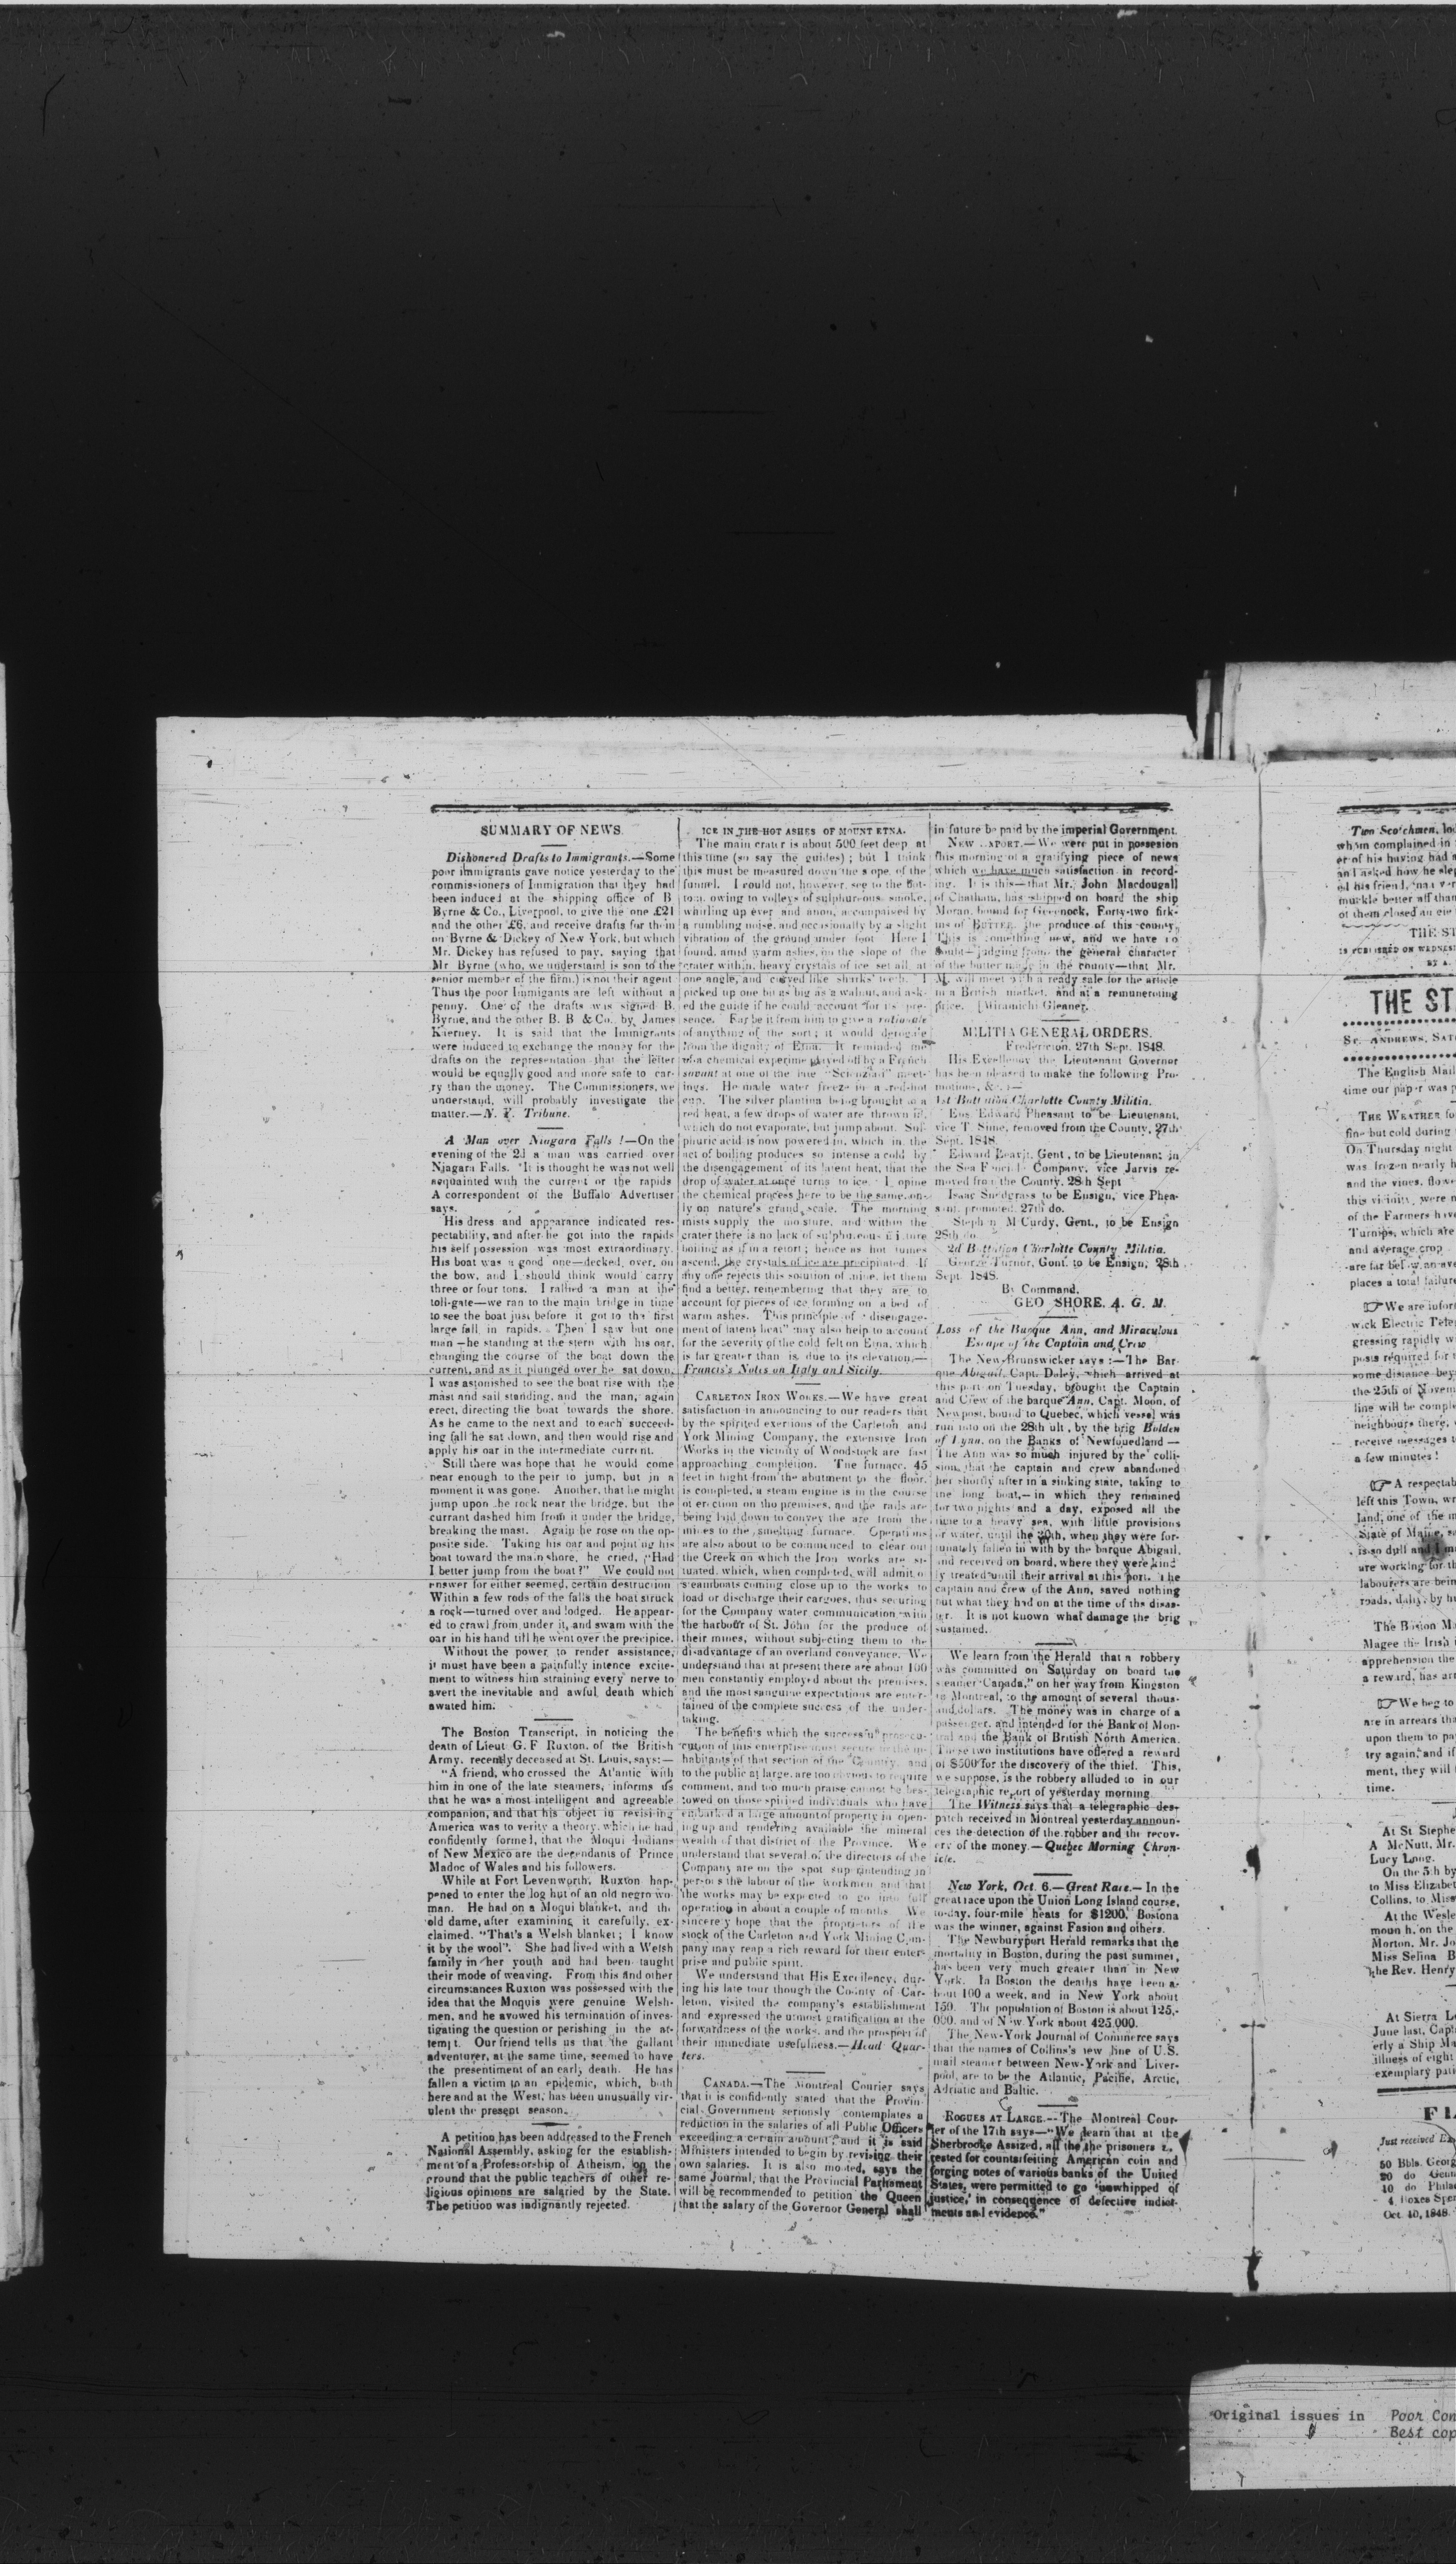 SUMMARY OF NEWS.
Dishonered Drafts to Immigrants.—Some
poor immigrants gave notice yesterday to the
commissioners of Immigration that they had
been induced at the shipping office of B
Byrne & Co., Liverpool, to give the one £21
and the other £6, and receive drafts for them
on Byrne & Dickey of New York, but which
Mr. Dickey has refused to pay, saying that
Mr Byrne (who, we understand is son to the
senior member of the firm.) is not their agent
Thus the poor Immigants are left without a
penny. One of the drafts was signed B.
Byrne, and the other B. B & Co. by James
Kierney. It is said that the Immigrants
were induced to exchange the money for the
drafts on the representation that the letter
would be equally good and more safe to car-
ry than the money. The Commissioners, we
understand, will probably investigate the
matter.—N. Y. Tribune.
A Man over Niagara Falls !—On the
evening of the 2d a man was carried over
Niagara Falls. It is thought he was not well
acquainted with the current or the rapids
A correspondent of the Buffalo Advertiser
says.
His dress and appearance indicated res-
pectability, and after he got into the rapids
his self possession was most extraordinary.
His boat was a good one—decked, over, on
the bow, and I should think would carry
three or four tons. I rallied a man at the
toll-gate—we ran to the main bridge in time
to see the boat just before it got to the first
large fall in rapids. Then I saw but one
man—he standing at the stern with his oar,
changing the course of the boat down the
current, and as it plunged over he sat down.
I was astonished to see the boat rise with the
mast and sail standing, and the man, again
erect, directing the boat towards the shore.
As he came to the next and to each succeed-
ing fall he sat down, and then would rise and
apply his oar in the intermediate current.
Still there was hope that he would come
near enough to the peir to jump, but in a
moment it was gone. Another, that he might
jump upon the rock near the bridge, but the
currant dashed him from it under the bridge,
breaking the mast. Again he rose on the op-
posite side. Taking his oar and pointing his
boat toward the main shore, he cried, "Had
I better jump from the boat?" We could not
enswer for either seemed certain destruction
Within a few rods of the falls the boat struck
a rock—turned over and lodged. He appear-
ed to crawl from under it, and swam with the
oar in his hand till he went over the precipice.
Without the power to render assistance,
it must have been a painfully intence excite-
ment to witness him straining every nerve to
avert the inevitable and awful death which
awated him.
The Boston Transcript, in noticing the
death of Lieut G. F Ruxton, of the British
Army, recently deceased at St. Louis, says:—
"A friend, who crossed the Atlantic with
him in one of the late steamers, informs us
that he was a most intelligent and agreeable
companion, and that his object in revisiting
America was to verify a theory, which he had
confidently formed, that the Moqui Indians
of New Mexico are the decendants of Prince
Madoc of Wales and his followers.
While at Fort Levenworth, Ruxton hap-
pened to enter the log hut of an old negro wo-
man. He had on a Moqui blanket, and the
old dame, after examining it carefully, ex-
claimed. "That's a Welsh blanket; I know
it by the wool". She had lived with a Welsh
family in her youth and had been taught
their mode of weaving. From this and other
circumstances Ruxton was possessed with the
idea that the Moquis were genuine Welsh-
men, and he avowed his termination of inves-
tigating the question or perishing in the at-
tempt. Our friend tells us that the gallant
adventurer, at the same time, seemed to have
the presentiment of an early death. He has
fallen a victim to an epidemic, which, both
here and at the West, has been unusually vir-
ulent the present season.
A petition has been addressed to the French
National Assembly, asking for the establish-
ment of a Professorship of Atheism, on the
ground that the public teachers of other re-
ligious opinions are salaried by the State.
The petition was indignantly rejected.
ICE IN THE HOT ASHES OF MOUNT ETNA.
The main crater is about 500 feet deep at
this time (so say the guides) ; but I think
this must be measured down the slope of the
funnel. I could not, however, see to the bot-
tom, owing to volleys of sulphureous smoke,
whirling up ever and anon, accompained by
a rumbling noise, and occasionally by a slight
vibration of the ground under foot. Here I
found, amid warm ashes, on the slope of the
crater within, heavy crystals of ice set all at
one angle, and curved like sharks' teeth. I
picked up one bit as big as a walnut, and ask-
ed the guide if he could account for its pre-
sence. Far be it from him to give a rationale
of anything of the sort; it would derogate
from the dignity of Etna. It reminded me
of a chemical experime played off by a French
savant at one of the late "Scienziati" meet-
ings. He made water freeze in a red-hot
cup. The silver plantina being brought to a
red heat, a few drops of water are thrown in,
which do not evaporate, but jump about. Sul-
phuric acid is now powered in, which in the
act of boiling produces so intense a cold by
the disengagement of its latent heat, that the
drop of water at once turns to ice. I opine
the chemical process here to be the same, on-
ly on nature's grand scale. The morning
mists supply the moisture, and within the
crater there is no lack of sulphureous
boiling as if in a retort; hence as hot fumes
ascend, the crystals of ice are precipitated. If
any one rejects this solution of mine, let them
find a better, remembering that they are to
account for pieces of ice forming on a bed of
warm ashes. This principle of "disengage-
ment of latent heat" may also help to account
for the severity of the cold felt on Etna, which
is far greater than is due to its elevation.—
Francis's Notes on Italy and Sicily.
CARLETON IRON WORKS.—We have great
satisfaction in announcing to our readers that
by the spirited exertions of the Carleton and
York Mining Company, the extensive Iron
Works in the vicinity of Woodstock are fast
approaching completion. The furnace, 45
feet in hight from the abutment to the floor,
is completed, a steam engine is in the course
of erection on the premises, and the rails are
being laid down to convey the are from the
mines to the smelting furnace. Operations
are also about to be commenced to clear out
the Creek on which the Iron works are si-
tuated, which, when completed, will admit o
steamboats coming close up to the works to
load or discharge their cargoes, thus securing
for the Company water communication with
the harbour of St. John for the produce of
their mines, without subjecting them to the
disadvantage of an overland conveyance. We
understand that at present there are about 100
men constantly employed about the premises,
and the most sanguine expectations are enter-
tained of the complete success of the under-
taking.
The benefits which the successful prosecu-
cution of this enterprise must secure to the in-
habitants of that section of the Country, and
to the public at large, are too obvious to require
comment, and too much praise cannot be bes-
towed on those spirited individuals who have
embarked a large amount of property in open-
ing up and rendering available the mineral
wealth of that district of the Province. We
understand that several of the directors of the
Company are on the spot superintending in
persons the labour of the workmen and that
the works may be expected to go into full
operation in about a couple of months. We
sincerely hope that the proprietors of the
stock of the Carleton and York Mining Com-
pany may reap a rich reward for their enter-
prise and public spirit.
We understand that His Excellency, dur-
ing his late tour though the County of Car-
leton, visited the company's establishment
and expressed the utmost gratification at the
forwardness of the works, and the prospect of
their immediate usefulness.—Head Quar-
ters.
CANADA.—The Montreal Courier says
that it is confidently stated that the Provin-
cial Government seriously contemplates a
reduction in the salaries of all Public Officers
exceeding a certain amount, and it is said
Ministers intended to begin by revising their
own salaries. It is also mooted, says the
same Journal, that the Provincial Parliament
will be recommended to petition the Queen
that the salary of the Governor General shall
in future be paid by the imperial Government.
NEW EXPORT.—We were put in possesion
this morning of a gratifying piece of news
which we have much satisfaction in record-
ing. It is this—that Mr. John Macdougall
of Chatham, has shipped on board the ship
Moran, bound for Greenock, Forty-two firk-
ins of BUTTER, the produce of this county.
This is something new, and we have no
doubt—judging from the general character
of the butter made in the county—that Mr.
M. will meet with a ready sale for the article
in a British market, and at a remunerating
price. [Miramichi Gleaner.
MILITIA GENERAL ORDERS.
Fredericton, 27th Sept. 1848.
His Excellency the Lieutenant Governor
has been pleased to make the following Pro-
motions, &c. :—
1st Battalion Charlotte County Militia.
Ens Edward Pheasant to be Lieutenant,
vice T. Sime, removed from the County, 27th
Sept. 1848.
Edward Leavit, Gent, to be Lieutenant in
the Sea Fencible Company, vice Jarvis re-
moved from the County. 28th Sept
Isaac Snodgrass to be Ensign, vice Phea-
sant, promoted. 27th do.
Stephen McCurdy, Gent., to be Ensign
28th do.
2d Battalion Charlotte County Militia.
George Turnor, Gent. to be Ensign, 28th
Sept. 1848.
By Command,
GEO SHORE, A. G. M.
Loss of the Barque Ann, and Miraculous
Escape of the Captain and Crew
The New-Brunswicker says :—The Bar-
que Abigail, Capt. Daley, which arrived at
this port on Tuesday, brought the Captain
and Crew of the barque Ann, Capt. Moon, of
Newpost, bound to Quebec, which vessel was
run into on the 28th ult, by the brig Bolden
of Lynn, on the Banks of Newfouedland—
The Ann was so much injured by the colli-
sion, that the captain and crew abandoned
her shortly after in a sinking state, taking to
the long boat,—in which they remained
for two nights and a day, exposed all the
time to a heavy sea, with little provisions
or water, until the 30th, when they were for-
tunately fallen in with by the barque Abigail,
and received on board, where they were kind
ly treated until their arrival at this port. The
captain and crew of the Ann, saved nothing
but what they had on at the time of the disas-
ter. It is not known what damage the brig
sustained.
We learn from the Herald that a robbery
was committed on Saturday on board the
steamer "Canada," on her way from Kingston
to Montreal, to the amount of several thous-
and dollars. The money was in charge of a
passenger, and intended for the Bank of Mon-
treal and the Bank of British North America.
These two institutions have offered a reward
of $500 for the discovery of the thief. This,
we suppose, is the robbery alluded to in our
telegraphic report of yesterday morning.
The Witness says that a telegraphic des-
patch received in Montreal yesterday announ-
ces the detection of the robber and the recov-
ery of the money.—Quebec Morning Chron-
icle.
New York, Oct. 6.—Great Race.—In the
great race upon the Union Long Island course,
to-day, four-mile heats for $1200, Bostona
was the winner, against Fasion and others.
The Newburyport Herald remarks that the
mortality in Boston, during the past summer,
has been very much greater than in New
York. In Boston the deaths have been a-
bout 100 a week, and in New York about
150. The population of Boston is about 125,-
000, and of New York about 425,000.
The New-York Journal of Commerce says
that the names of Collins's new line of U.S.
mail steamer between New-York and Liver-
pool, are to be the Atlantic, Pacific, Arctic,
Adriatic and Baltic.
ROGUES AT LARGE.—The Montreal Cour-
ier of the 17th says—"We learn that at the
Sherbrooke Assized, all the the prisoners
rested for counterfeiting American coin and
forging notes of various banks of the United
States, were permitted to go 'unwhipped of
justice,' in consequence of defective indict-
ments and evidence."
Two Scotchmen, lo
whom complained in
er of his having had a
and asked how he slep
ed his friend,
muckle better aff than
ot them closed an eie
THE ST
IS PUBLISHED ON WEDNES
BY A.
THE ST
St. ANDREWS, SAT
The English Mail
time our paper was p
THE WEATHER fo
fine but cold during
On Thursday night
was frozen nearly h
and the vines, flowe
this vicinity, were n
of the Farmers have
Turnips, which are
and average crop
are far below an ave
places a total failure
We are infor
wick Electric Tele
gressing rapidly w
posts required for t
some distance bey
the 25th of Novem
line will be comple
neighbours there,
receive messages t
a few minutes !
A respectab
left this Town, wr
land, one of the m
State of Maine, s
is so dull and m
are working for th
labourers are bein
roads, daily, by h
The Boston M
Magee the Irish
apprehension the
a reward, has arr
We beg to
are in arrears tha
upon them to pa
try again, and if
ment, they will
time.
At St Stephe
A McNutt, Mr.
Lucy Long.
On the 5th by
to Miss Elizabet
Collins, to Miss
At the Wesle
mouth, on the
Morton, Mr. Jo
Miss Selina B
the Rev. Henry
At Sierra Le
June last, Capt
erly a Ship Ma
illness of eight
exemplary pati
FL
Just received Ex
50 Bbls. Georg
20 do Gene
10 do Phila
4 Boxes Sper
Oct. 10, 1848.
Original issues in Poor Con
Best cop